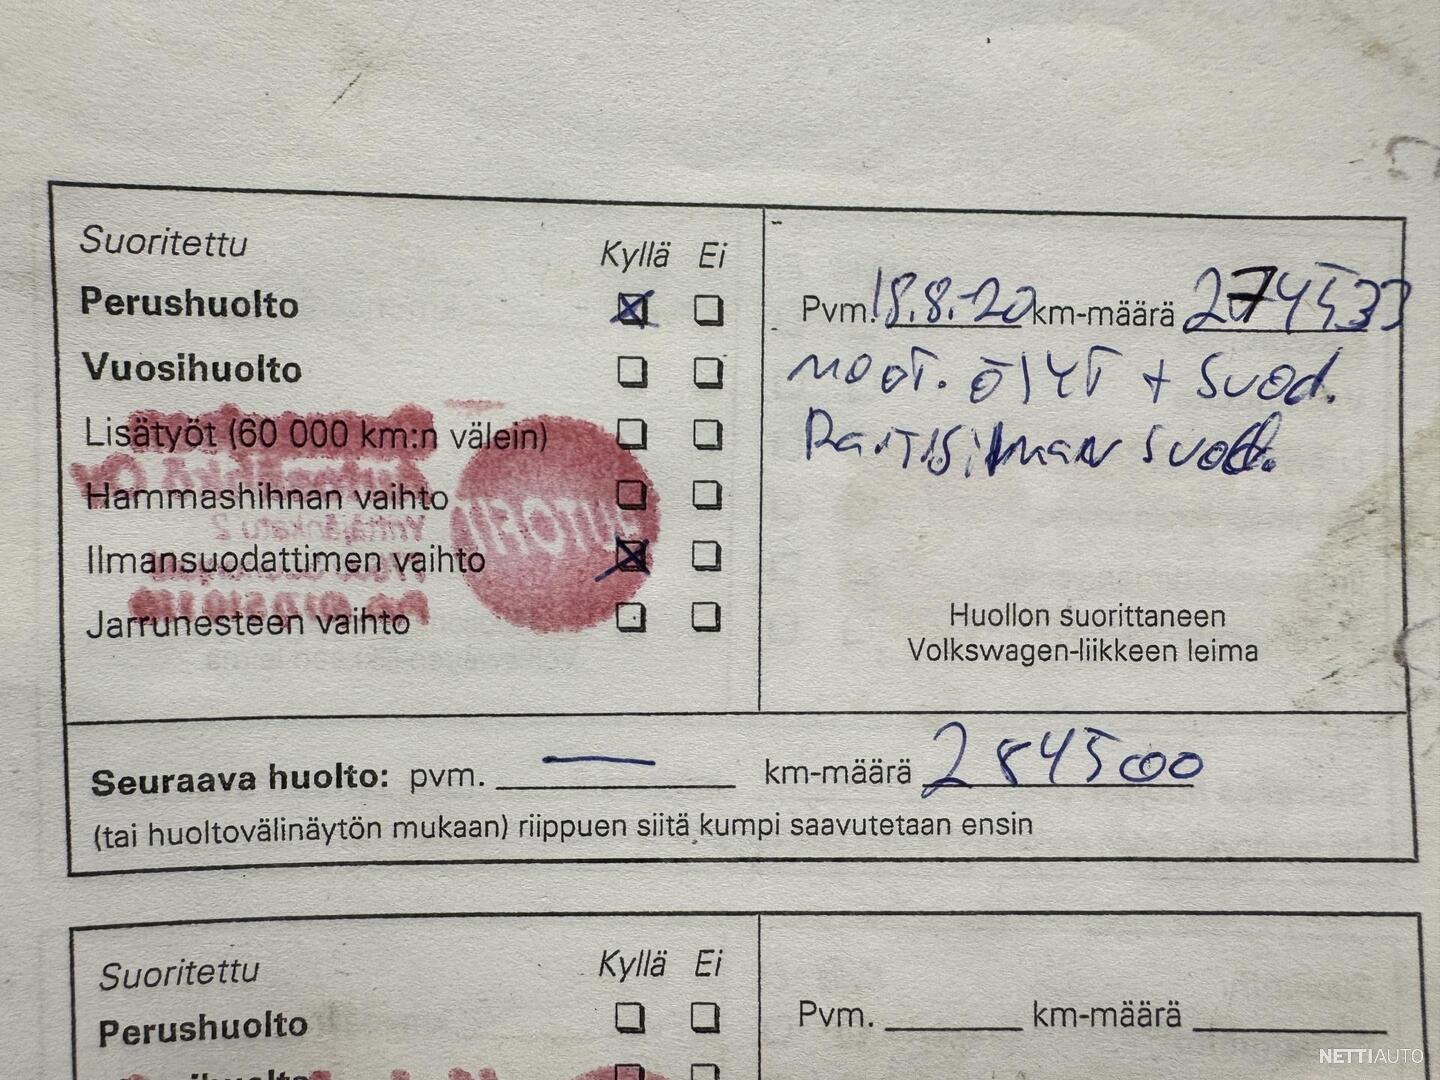 Suoritettu Kyllä Ei
Perushuolto
Vuosihuolto
Lisätyöt (60 000 km:n välein)
Hammashihnan vaihto
Ilmansuodattimen vaihto
Jarrunesteen vaihto
Pvm. 18.8.20 km-määrä 274533
moot. öljyt + suod.
Raitisilman suod.
Huollon suorittaneen
Volkswagen-liikkeen leima
Seuraava huolto: pvm. — km-määrä 284500
(tai huoltovälinäytön mukaan) riippuen siitä kumpi saavutetaan ensin
Suoritettu Kyllä Ei
Perushuolto
Pvm. km-määrä
NETTIAUTO